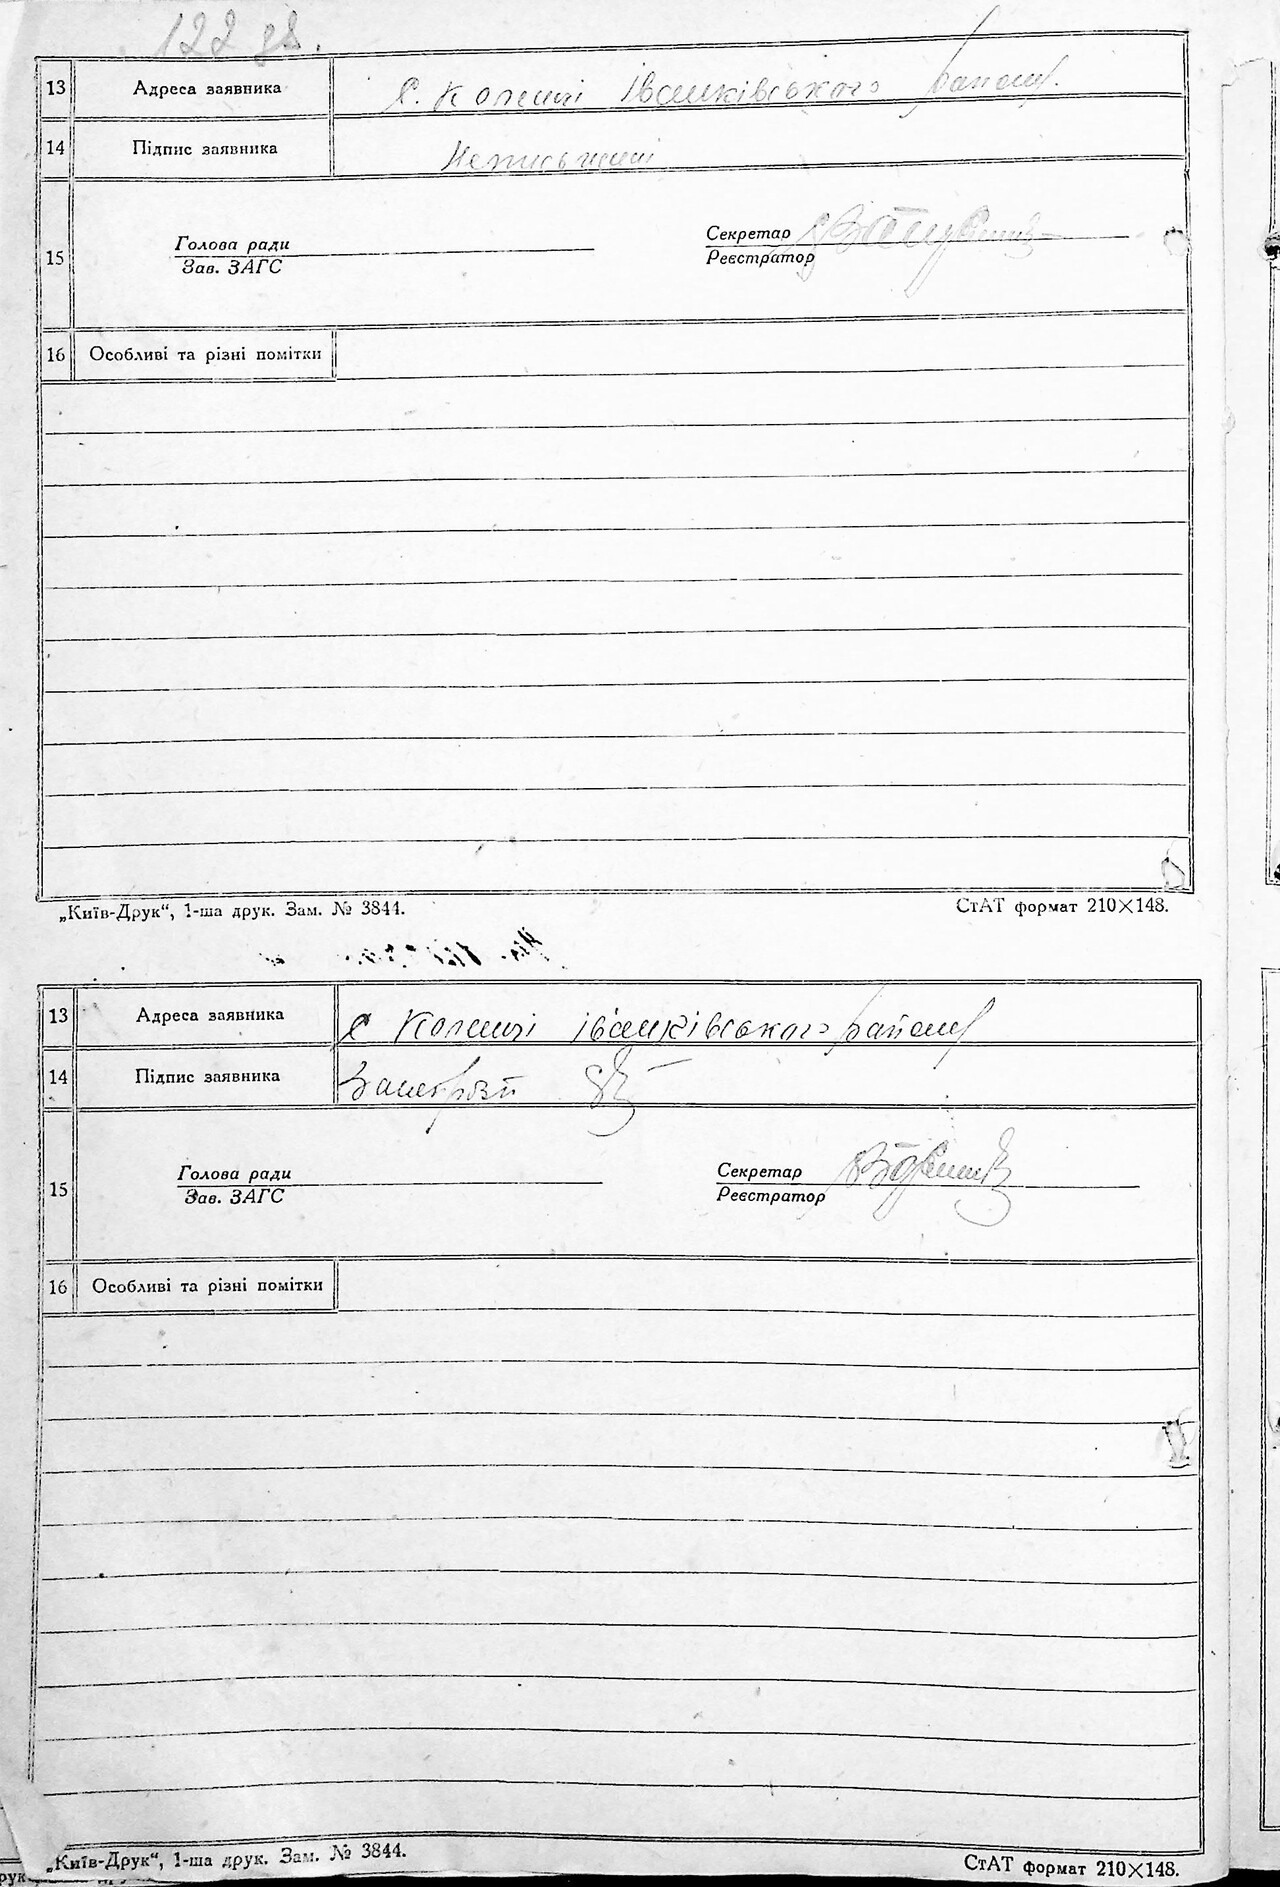 122 зв.
13 Адреса заявника с. Коленці Іванківського району.
14 Підпис заявника Неписьмені
15 Голова ради Зав. ЗАГС Секретар Реєстратор
16 Особливі та різні помітки
„Київ-Друк“, 1-ша друк. Зам. № 3844. СтАТ формат 210×148.
13 Адреса заявника с Коленці Іванківського району
14 Підпис заявника
15 Голова ради Зав. ЗАГС Секретар Реєстратор
16 Особливі та різні помітки
„Київ-Друк“, 1-ша друк. Зам. № 3844. СтАТ формат 210×148.